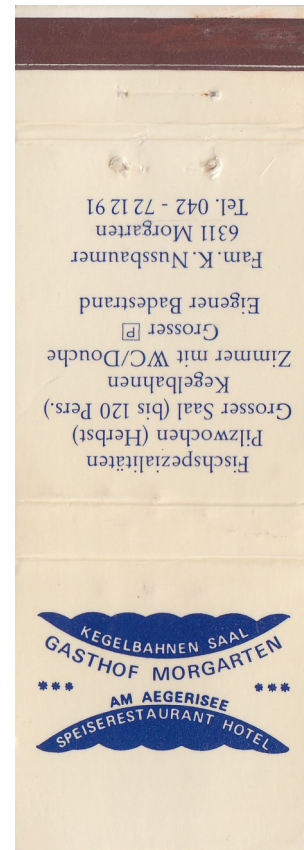 Fischspezialitäten
Pilzwochen (Herbst)
Grosser Saal (bis 120 Pers.)
Kegelbahnen
Zimmer mit WC/Douche
Grosser P
Eigener Badestrand
Fam. K. Nussbaumer
6311 Morgarten
Tel. 042 - 72 12 91
KEGELBAHNEN SAAL
GASTHOF MORGARTEN
*** ***
AM AEGERISEE
SPEISERESTAURANT HOTEL